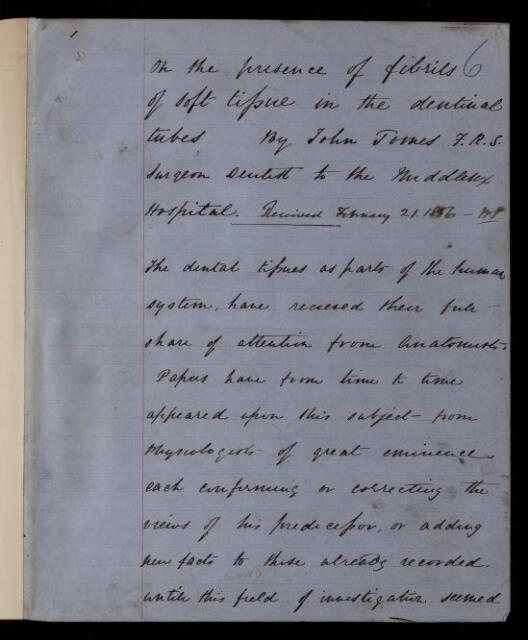 1
6
On the presence of fibrils
of soft tissue in the dentinal
tubes By John Tomes F.R.S.
Surgeon Dentist to the Middlesex
Hospital. Received February 21. 1856 –
The dental tissues as parts of the human
system, have recieved their full
share of attention from Anatomists.
Papers have from time to time
appeared upon this subject from
Physiologists of great eminence
each confirming or correcting the
views of his predicessor, or adding
new facts to those already recorded.
until this field of investigation seemed